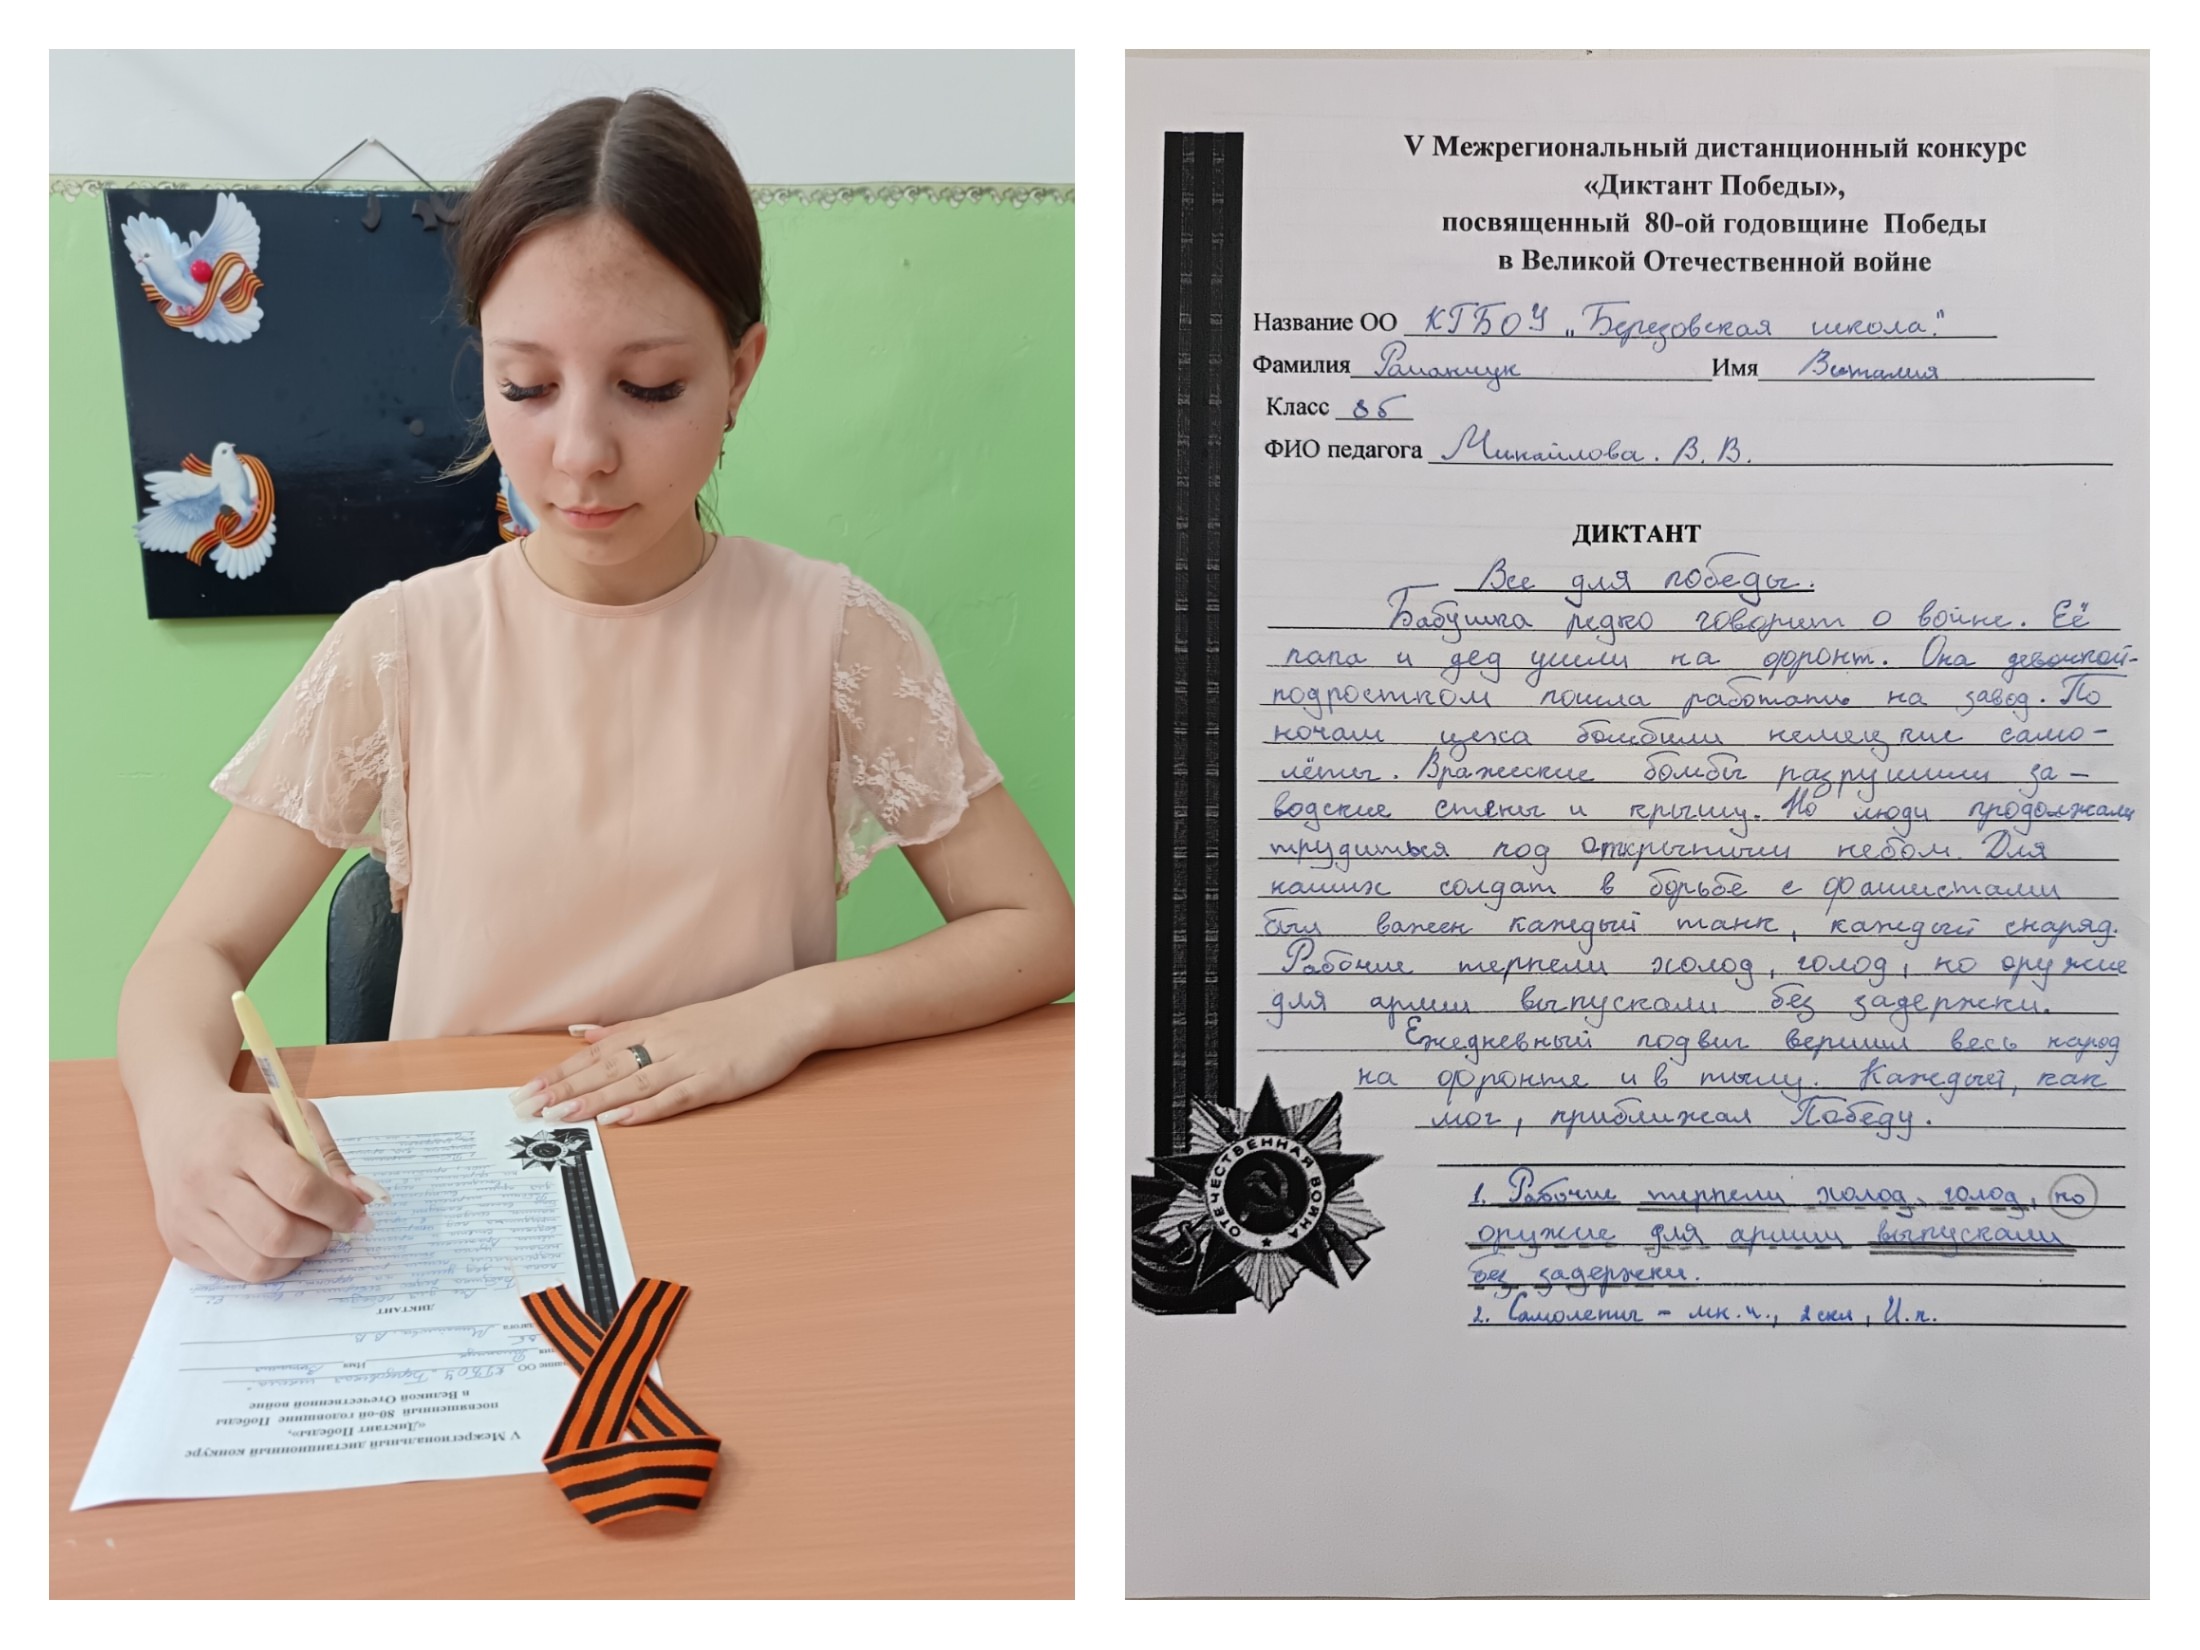 V Межрегиональный дистанционный конкурс
«Диктант Победы»,
посвященный 80-ой годовщине Победы
в Великой Отечественной войне
Название ОО КГБОУ „Березовская школа."
Фамилия Романчук Имя Виталия
Класс 8б
ФИО педагога Михайлова. В. В.
ДИКТАНТ
Все для победы.
Бабушка редко говорит о войне. Её
папа и дед ушли на фронт. Она девочкой-
подростком пошла работать на завод. По
ночам цеха бомбили немецкие само-
лёты. Вражеские бомбы разрушили за-
водские стены и крышу. Но люди продолжали
трудиться под открытым небом. Для
наших солдат в борьбе с фашистами
был важен каждый танк, каждый снаряд.
Рабочие терпели холод, голод, но оружие
для армии выпускали без задержки.
Ежедневный подвиг вершил весь народ
на фронте и в тылу. Каждый, как
мог, приближал Победу.
1. Рабочие терпели холод, голод, но
оружие для армии выпускали
без задержки.
2. Самолеты - мн.ч., 2 скл, И.п.
ОТЕЧЕСТВЕННАЯ ВОЙНА
V Межрегиональный дистанционный конкурс
«Диктант Победы»,
посвященный 80-ой годовщине Победы
в Великой Отечественной войне
ДИКТАНТ